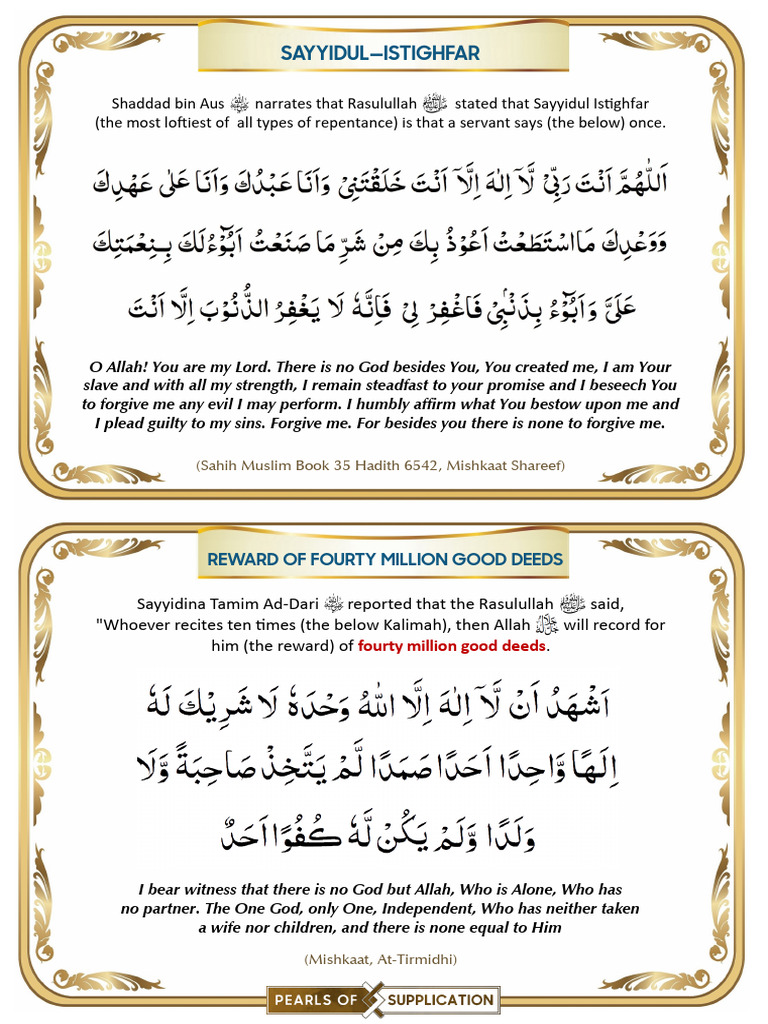 SAYYIDUL–ISTIGHFAR
Shaddad bin Aus ؓ narrates that Rasulullah ﷺ stated that Sayyidul Istighfar
(the most loftiest of all types of repentance) is that a servant says (the below) once.
اَللّٰهُمَّ اَنْتَ رَبِّيْ لَآ اِلٰهَ اِلَّآ اَنْتَ خَلَقْتَنِيْ وَاَنَا عَبْدُكَ وَاَنَا عَلٰى عَهْدِكَ
وَوَعْدِكَ مَااسْتَطَعْتُ اَعُوْذُ بِكَ مِنْ شَرِّ مَا صَنَعْتُ اَبُوْٓءُلَكَ بِـنِعْمَتِكَ
عَلَيَّ وَاَبُوْٓءُ بِذَنْۢبِيْ فَاغْفِرْ لِيْ فَاِنَّهٗ لَا يَغْفِرُ الذُّنُوْبَ اِلَّا اَنْتَ
O Allah! You are my Lord. There is no God besides You, You created me, I am Your
slave and with all my strength, I remain steadfast to your promise and I beseech You
to forgive me any evil I may perform. I humbly affirm what You bestow upon me and
I plead guilty to my sins. Forgive me. For besides you there is none to forgive me.
(Sahih Muslim Book 35 Hadith 6542, Mishkaat Shareef)
REWARD OF FOURTY MILLION GOOD DEEDS
Sayyidina Tamim Ad-Dari ؓ reported that the Rasulullah ﷺ said,
"Whoever recites ten times (the below Kalimah), then Allah ﷻ will record for
him (the reward) of fourty million good deeds.
اَشْهَدُ اَنْ لَّآ اِلٰهَ اِلَّا اللّٰهُ وَحْدَهٗ لَا شَرِيْكَ لَهٗ
اِلَهًا وَّاحِدًا اَحَدًا صَمَدًا لَّمْ يَتَّخِذْ صَاحِبَةً وَّلَا
وَلَدًا وَّلَمْ يَكُنْ لَّهٗ كُفُوًا اَحَدٌ
I bear witness that there is no God but Allah, Who is Alone, Who has
no partner. The One God, only One, Independent, Who has neither taken
a wife nor children, and there is none equal to Him
(Mishkaat, At-Tirmidhi)
PEARLS OF SUPPLICATION